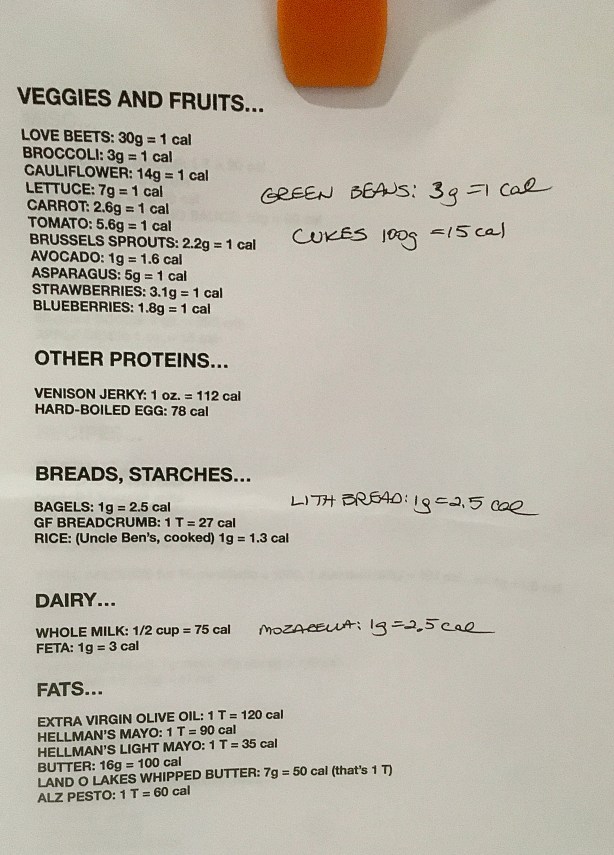 VEGGIES AND FRUITS...
LOVE BEETS: 30g = 1 cal
BROCCOLI: 3g = 1 cal
CAULIFLOWER: 14g = 1 cal
LETTUCE: 7g = 1 cal
GREEN BEANS: 3g = 1 cal
CARROT: 2.6g = 1 cal
TOMATO: 5.6g = 1 cal
CUKES 100g = 15 cal
BRUSSELS SPROUTS: 2.2g = 1 cal
AVOCADO: 1g = 1.6 cal
ASPARAGUS: 5g = 1 cal
STRAWBERRIES: 3.1g = 1 cal
BLUEBERRIES: 1.8g = 1 cal
OTHER PROTEINS...
VENISON JERKY: 1 oz. = 112 cal
HARD-BOILED EGG: 78 cal
BREADS, STARCHES...
BAGELS: 1g = 2.5 cal
LITH BREAD: 1g = 2.5 cal
GF BREADCRUMB: 1 T = 27 cal
RICE: (Uncle Ben's, cooked) 1g = 1.3 cal
DAIRY...
WHOLE MILK: 1/2 cup = 75 cal
MOZARELLA: 1g = 2.5 cal
FETA: 1g = 3 cal
FATS...
EXTRA VIRGIN OLIVE OIL: 1 T = 120 cal
HELLMAN'S MAYO: 1 T = 90 cal
HELLMAN'S LIGHT MAYO: 1 T = 35 cal
BUTTER: 16g = 100 cal
LAND O LAKES WHIPPED BUTTER: 7g = 50 cal (that's 1 T)
ALZ PESTO: 1 T = 60 cal